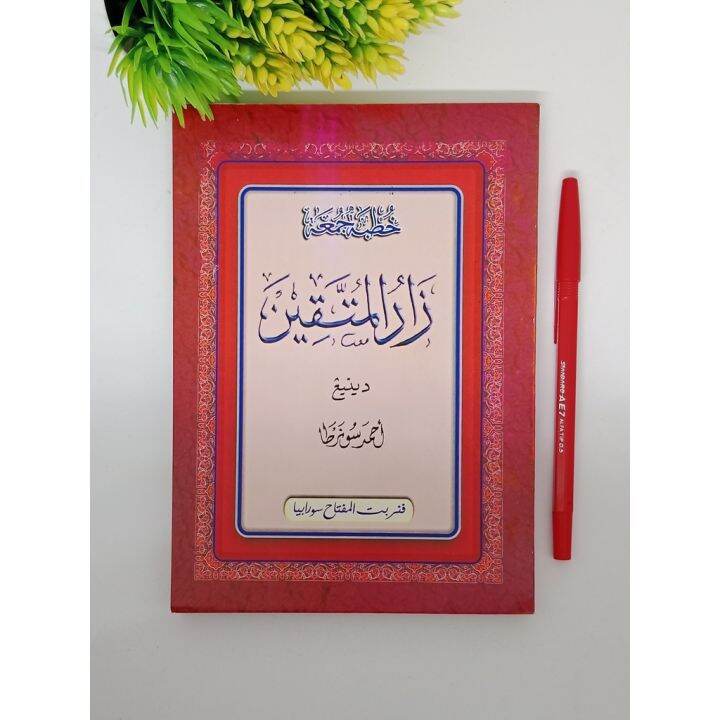 خُطْبَة جُمْعَة
زَارُ الْمُتَّقِيْنَ
دينيڠ
أحمد سونرطا
فنربت المفتاح سورابيا
STANDARD AE7 ALFA TIP 0.5